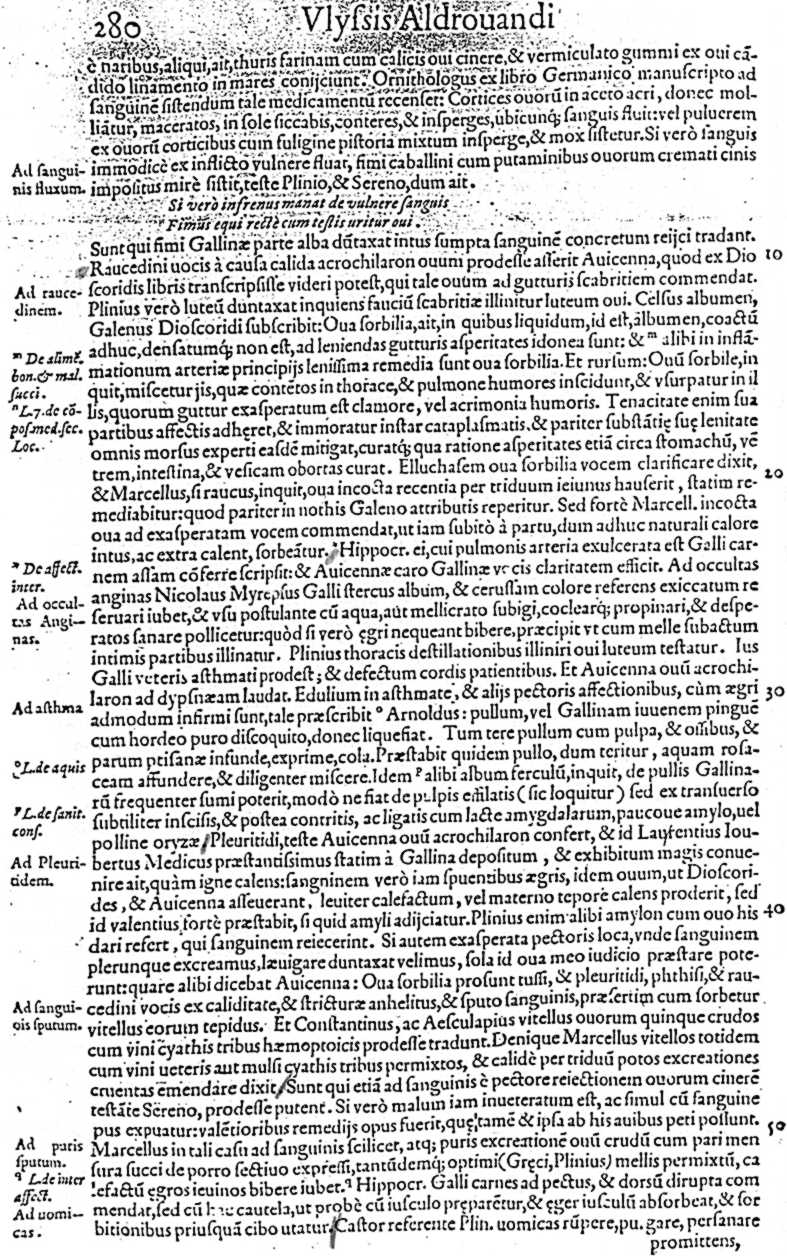 280 Vlyssis Aldrouandi
è naribus,aliqui,ait,thuris farinam cum calicis oui cinere,& vermiculato gummi ex oui cã-
dido linamento in mares conijciunt. Ornithologus ex libro Germanico manuscripto ad
sanguinẽ sistendum tale medicamentũ recenset: Cortices ouorũ in aceto acri, donec mol-
liãtur, maceratos, in sole siccabis, conteres, & insperges, ubicunq; sanguis fluit: vel puluerem
ex ouorũ corticibus cum fuligine pistoria mixtum insperge, & mox sistetur. Si verò sanguis
Ad sangui-
nis fluxum.
immodicè ex inflicto vulnere fluat, fimi caballini cum putaminibus ouorum cremati cinis
impositus mirè sistit, teste Plinio, & Sereno, dum ait.
Si verò infrenus manat de vulnere sanguis
Fimus equi rectè cum testis uritur oui.
Sunt qui fimi Gallinæ parte alba dũtaxat intus sumpta sanguinẽ concretum reijci tradant.
Raucedini uocis à causa calida acrochilaron ouum prodesse asserit Auicenna, quod ex Dio 10
Ad rauce-
dinem.
scoridis libris transcripsisse videri potest, qui tale ouum ad gutturis scabritiem commendat.
Plinius verò luteũ duntaxat inquiens fauciũ scabritiæ illinitur luteum oui. Celsus albumen,
Galenus Dioscoridi subscribit: Oua sorbilia, ait, in quibus liquidum, id est, albumen, coactũ
adhuc, densatumq; non est, ad leniendas gutturis asperitates idonea sunt: & ᵐ alibi in inflã-
ᵐ De alimẽ.
bon. & mal.
succi.
mationum arteriæ principijs lenissima remedia sunt oua sorbilia. Et rursum: Ouũ sorbile, in
quit, miscetur ijs, quæ contẽtos in thorace, & pulmone humores inscidunt, & vsurpatur in il
ⁿ L.7. de cõ-
pos. med. sec.
Loc.
lis, quorum guttur exasperatum est clamore, vel acrimonia humoris. Tenacitate enim sua
partibus affectis adheret, & immoratur instar cataplasmatis. & pariter substãtię suę lenitate
omnis morsus experti easdẽ mitigat, curatq; qua ratione asperitates etiã circa stomachũ, vẽ
trem, intestina, & vesicam obortas curat. Elluchasem oua sorbilia vocem clarificare dixit, 20
& Marcellus, si raucus, inquit, oua incocta recentia per triduum ieiunus hauserit, statim re-
mediabitur: quod pariter in nothis Galeno attributis reperitur. Sed fortè Marcell. incocta
oua ad exasperatam vocem commendat, ut iam subitò à partu, dum adhuc naturali calore
intus, ac extra calent, sorbeãtur. Hippocr. ei, cui pulmonis arteria exulcerata est Galli car-
ⁿ De affect.
inter.
nem assam cõferre scripsit: & Auicennæ caro Gallinæ vocis claritatem efficit. Ad occultas
Ad occul-
tas Angi-
nas.
anginas Nicolaus Myrepsus Galli stercus album, & cerussam colore referens exiccatum re
seruari iubet, & vsu postulante cũ aqua, aut mellicrato subigi, coclearq; propinari, & despe-
ratos sanare pollicetur: quòd si verò ęgri nequeant bibere, præcipit vt cum melle subactum
intimis partibus illinatur. Plinius thoracis destillationibus illiniri oui luteum testatur. Ius
Galli veteris asthmati prodest; & defectum cordis patientibus. Et Auicenna ouũ acrochi-
Ad asthma
laron ad dypsnæam laudat. Edulium in asthmate, & alijs pectoris affectionibus, cùm ægri 30
admodum infirmi sunt, tale præscribit º Arnoldus: pullum, vel Gallinam iuuenem pinguẽ
cum hordeo puro discoquito, donec liquefiat. Tum tere pullum cum pulpa, & ossibus, &
º L. de aquis
parum ptisanæ infunde, exprime, cola. Præstabit quidem pullo, dum teritur, aquam rosa-
ceam affundere, & diligenter miscere. Idem ᵖ alibi album ferculũ, inquit, de pullis Gallina-
ᵖ L. de sanit.
cons.
rũ frequenter sumi poterit, modò ne fiat de pulpis exilatis ( sic loquitur ) sed ex transuerso
subtiliter inscisis, & postea contritis, ac ligatis cum lacte amygdalarum, paucoue amylo, uel
polline oryzæ. Pleuritidi, teste Auicenna ouũ acrochilaron confert, & id Laurentius Iou-
Ad Pleuri-
tidem.
bertus Medicus præstantissimus statim à Gallina depositum, & exhibitum magis conue-
nire ait, quàm igne calens: sangninem verò iam spuentibus ægris, idem ouum, ut Dioscori-
des, & Auicenna asseuerant, leuiter calefactum, vel materno tepore calens proderit, sed
id valentius fortè præstabit, si quid amyli adijciatur. Plinius enim alibi amylon cum ouo his 40
dari refert, qui sanguinem reiecerint. Si autem exasperata pectoris loca, vnde sanguinem
plerunque excreamus, læuigare duntaxat velimus, sola id oua meo iudicio præstare pote-
runt: quare alibi dicebat Auicenna: Oua sorbilia prosunt tussi, & pleuritidi, phthisi, & rau-
Ad sangui-
nis sputum.
cedini vocis ex caliditate, & stricturæ anhelitus, & sputo sanguinis, præsertim cum sorbetur
vitellus eorum tepidus. Et Constantinus, ac Aesculapius vitellus ouorum quinque crudos
cum vini cyathis tribus hæmoptoicis prodesse tradunt. Denique Marcellus vitellos totidem
cum vini ueteris aut mulsi cyathis tribus permixtos, & calidè per triduũ potos excreationes
cruentas emendare dixit. Sunt qui etiã ad sanguinis è pectore reiectionem ouorum cinerẽ
testãte Sereno, prodesse putent. Si verò malum iam inueteratum est, ac simul cũ sanguine
pus expuatur: valẽtioribus remedijs opus fuerit, quę tamẽ & ipsa ab his auibus peti possunt. 50
Ad puris
sputum.
Marcellus in tali casu ad sanguinis scilicet, atq; puris excreationẽ ouũ crudũ cum pari men
sura succi de porro sectiuo expressi, tantũdemq; optimi (Gręci, Plinius) mellis permixtũ, ca
ᑫ L. de inter
affect.
lefactũ ęgros ieiunos bibere iubet. ᑫ Hippocr. Galli carnes ad pectus, & dorsũ dirupta com
Ad uomi-
cas.
mendat, sed cũ hac cautela, ut probè cũ iusculo præparẽtur, & ęger iusculũ absorbeat, & sor
bitionibus priusquã cibo utatur. Castor referente Plin. uomicas rũpere, pu.gare, persanare
promittens,